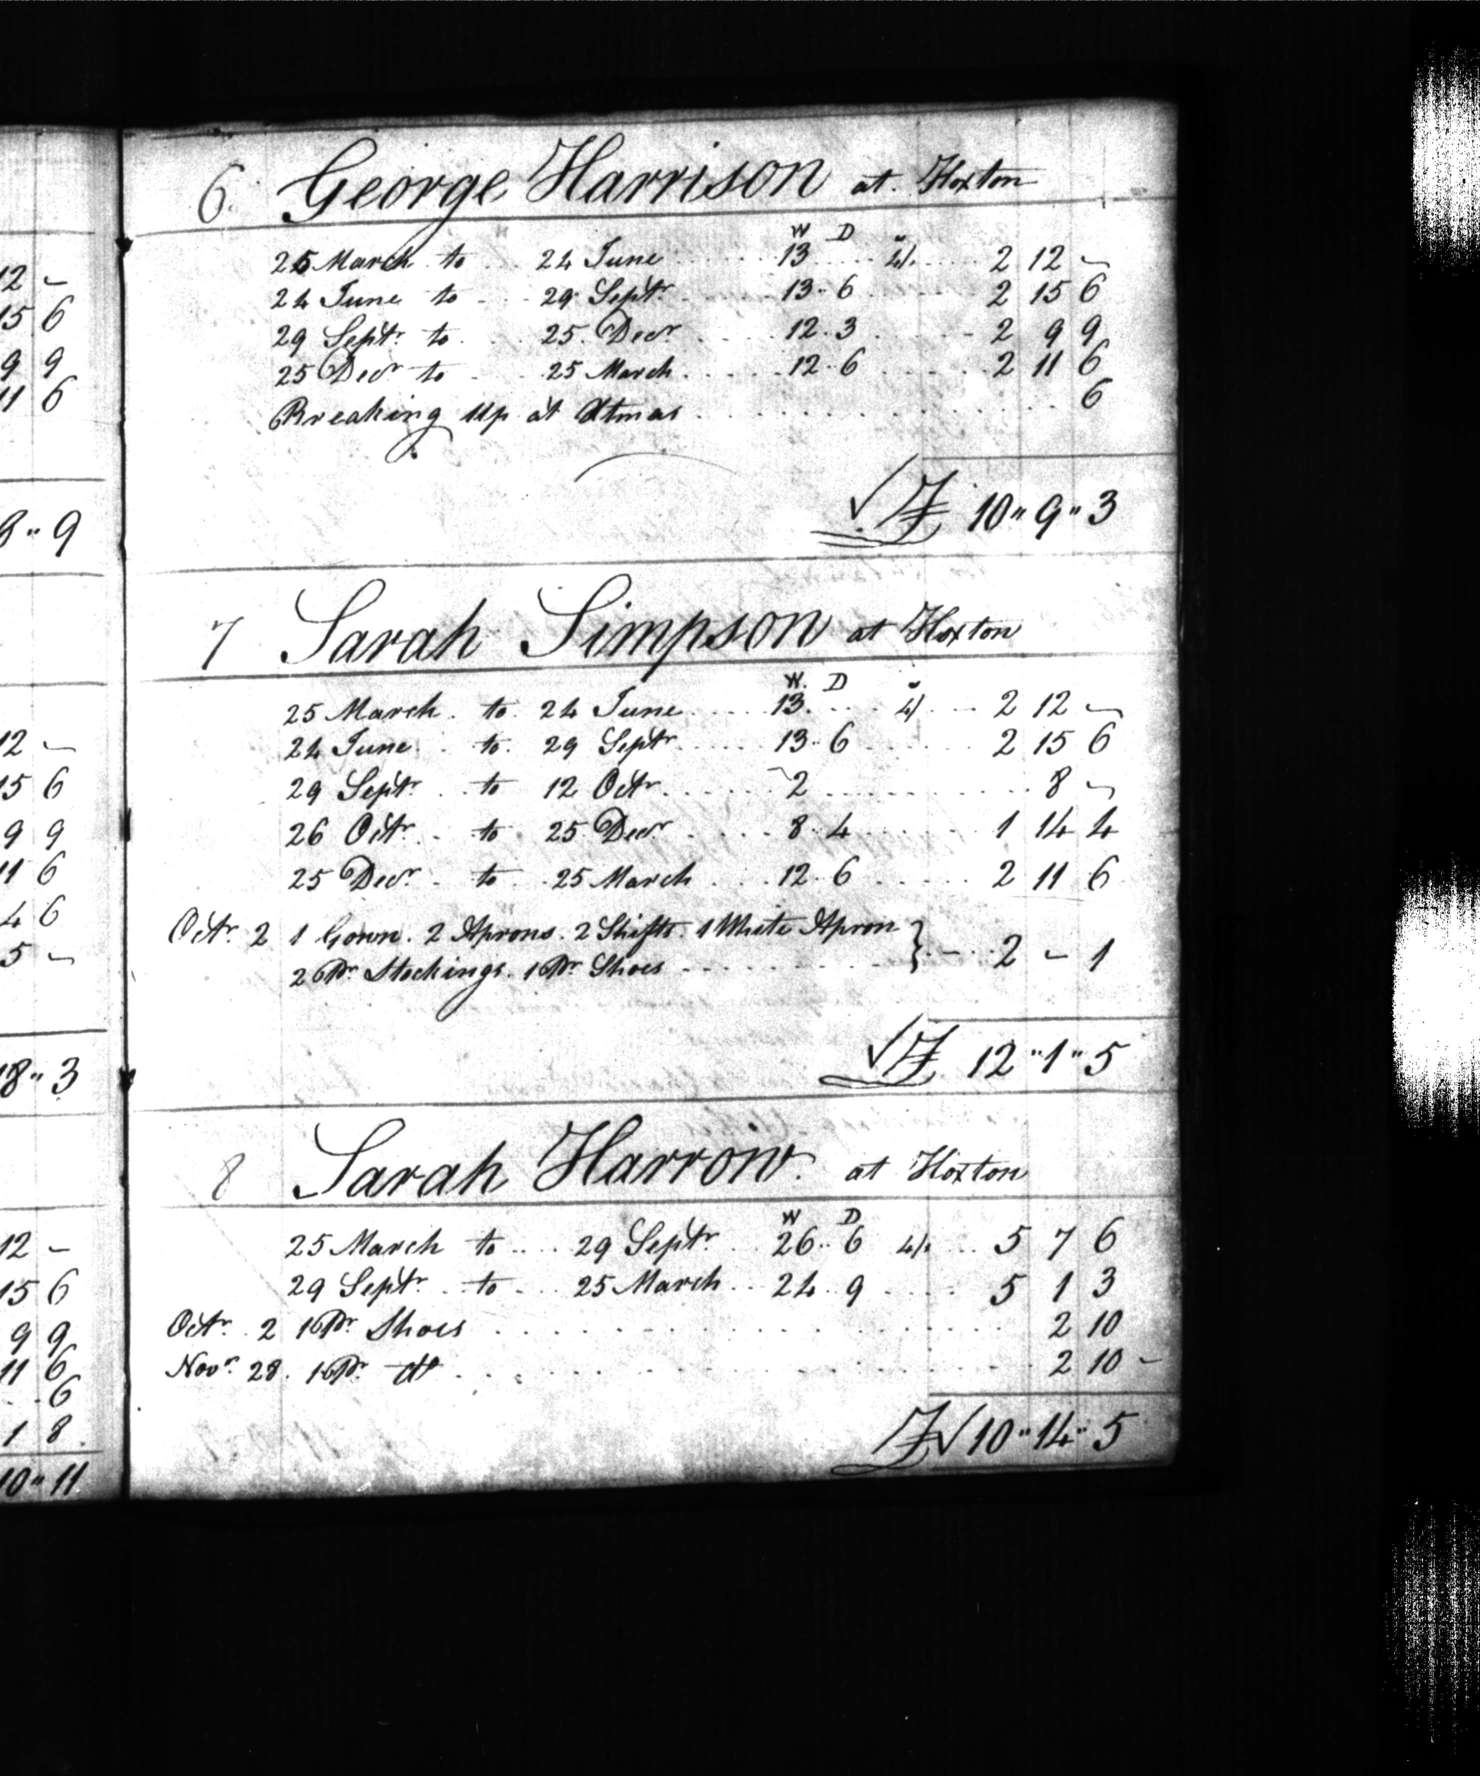 12 ~
15 6
9 9
11 6
8 " 9
12 ~
15 6
9 9
11 6
4 6
5 ~
18 " 3
12 ~
15 6
9 9
11 6
6
1 8
10 " 11
6. George Harrison at Hoxton
W D
25 March to 24 June 13 4/. 2 12 ~
24 June to 29 Septr. 13 .. 6 2 15 6
29 Septr. to 25 Decr. 12 . 3 2 9 9
25 Decr. to 25 March 12 .. 6 2 11 6
Breaking Up at Xtmas 6
£ 10 " 9 " 3
7 Sarah Simpson at Hoxton
W. D
25 March to 24 June 13. 4/ 2 12 ~
24 June to 29 Septr. 13 .. 6 2 15 6
29 Septr. to 12 Octr. 2 8 ~
26 Octr. to 25 Decr. 8 . 4 1 14 4
25 Decr. to 25 March 12 . 6 2 11 6
Octr. 2 1 Gown. 2 Aprons. 2 Shifts. 1 White Apron
2 Pr. Stockings. 1 Pr. Shoes } 2 ~ 1
£ 12 " 1 " 5
8 Sarah Harrow at Hoxton
W D
25 March to 29 Septr. 26 .. 6 4/. 5 7 6
29 Septr. to 25 March 24 . 9 5 1 3
Octr. 2 1 Pr. Shoes 2 10
Novr. 28. 1 Pr. do 2 10
£ 10 " 14 " 5